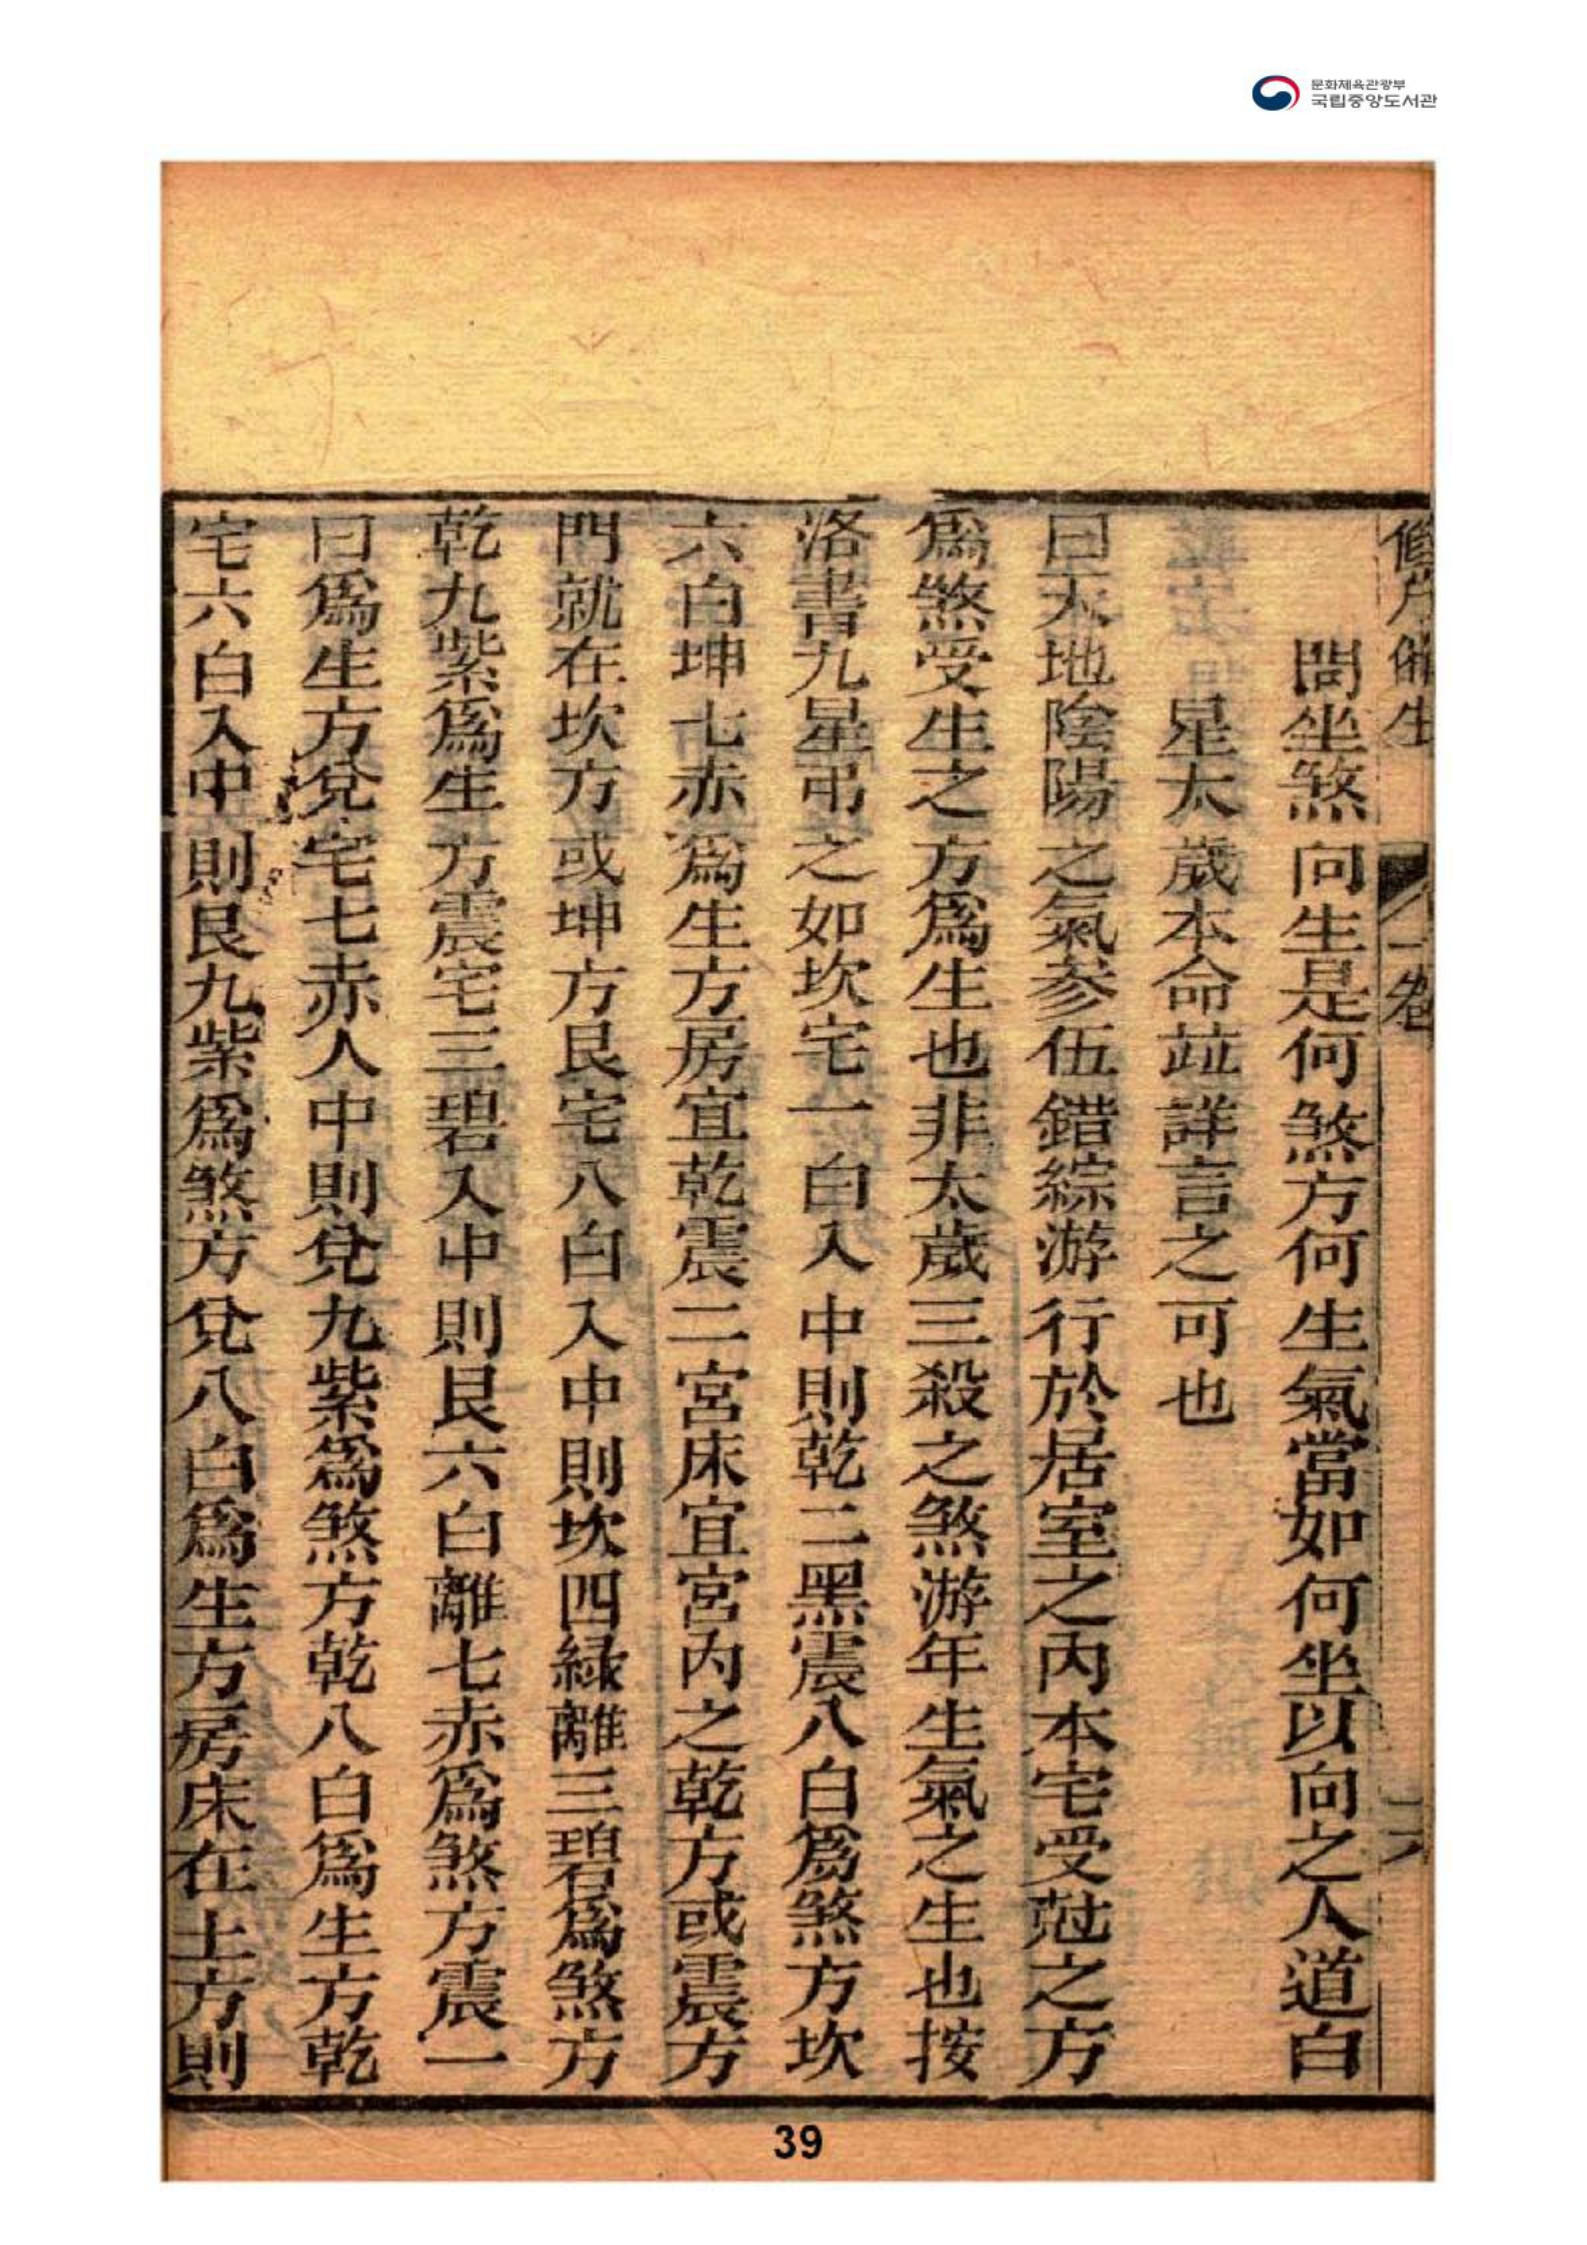 문화체육관광부
국립중앙도서관
一卷
問坐煞向生是何煞方何生氣當如何坐以向之人道白
星太歲本命竝詳言之可也
曰天地陰陽之氣參伍錯綜游行於居室之內本宅受尅之方
爲煞受生之方爲生也非太歲三殺之煞游年生氣之生也按
洛書九星弔之如坎宅一白入中則乾二黑震八白爲煞方坎
六白坤七赤爲生方房宜乾震二宮床宜宮內之乾方或震方
門就在坎方或坤方艮宅八白入中則坎四緑離三碧爲煞方
乾九紫爲生方震宅三碧入中則艮六白離七赤爲煞方震一
曰爲生方兌宅七赤人中則兌九紫爲煞方乾八白爲生方乾
宅六白入中則艮九紫爲煞方兌八白爲生方房床在土方則
39